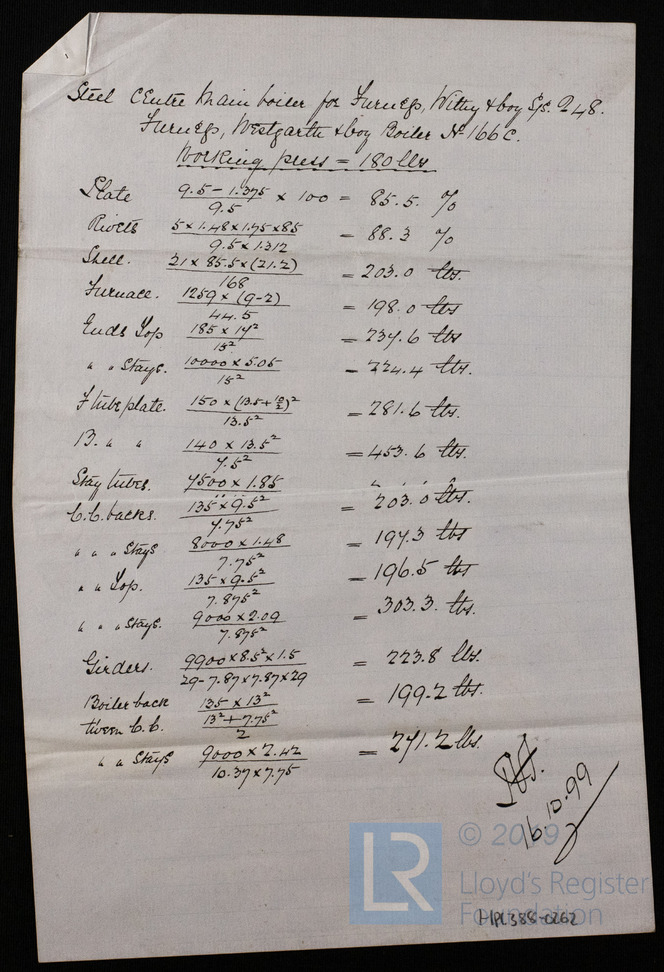 Steel Centre Main boiler for Furness, Withy & Coy S/s. 248.
Furness, Westgarth & Coy Boiler No 166c.
Working press = 180 lbs
Plate (9.5 - 1.375)/9.5 × 100 = 85.5. %
Rivets (5 × 1.48 × 1.75 × 85)/(9.5 × 1.312) = 88.3 %
Shell. (21 × 85.5 × (21.2))/168 = 203.0 lbs.
Furnace. (1259 × (9-2))/44.5 = 198.0 lbs
Ends Top (185 × 14²)/15² = 234.6 lbs
" " Stays. (10000 × 5.05)/15² = 224.4 lbs.
F tube plate. 150 × (13.5 + 10/2)²/13.5² = 281.6 lbs.
B. " " (140 × 13.5²)/7.5² = 453.6 lbs.
Stay tubes. 7500 × 1.85
C.C. backs. (135 × 9.5²)/7.75² = 203.0 lbs.
" " " Stays (8000 × 1.48)/7.75² = 197.3 lbs
" " Top. (135 × 9.5²)/7.875² = 196.5 lbs
" " " Stays. (9000 × 2.09)/7.875² = 303.3. lbs.
Girders. (9900 × 8.5² × 1.5)/(29 - 7.87 × 7.87 × 29) = 223.8 lbs.
Boiler back (135 × 13²) = 199.2 lbs.
tween C.C. (13² + 7.75²)/2
" " Stays (9000 × 2.42)/(10.37 × 7.75) = 271.2 lbs.
16.10.99
LR
© 2019
Lloyd's Register
Foundation
HPL388-0262